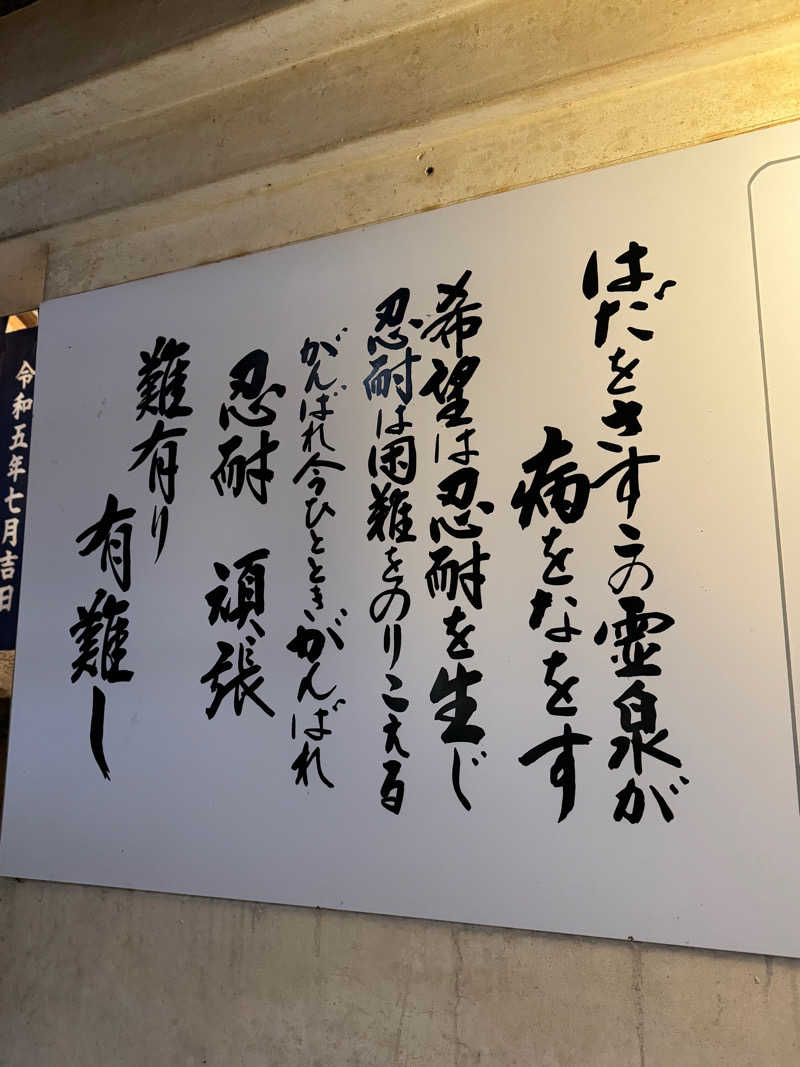 はだをさすこの霊泉が
病をなをす
希望は忍耐を生じ
忍耐は困難をのりこえる
がんばれ今ひとときがんばれ
忍耐 頑張
難有り
有難し
令和五年七月吉日